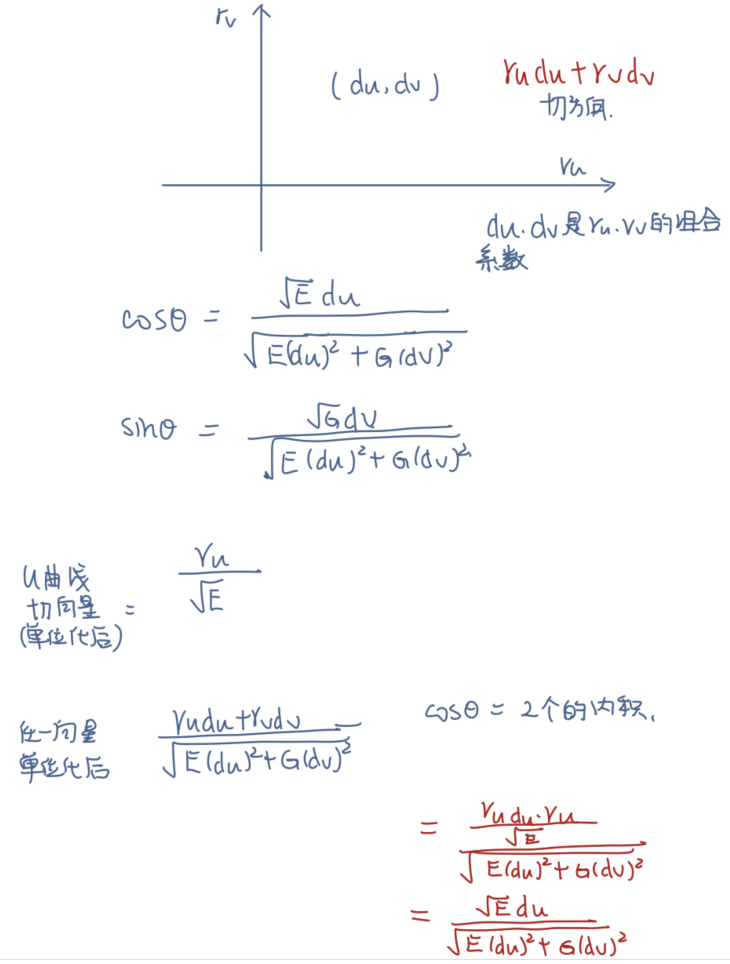 r_v
(du, dv)
r_u du + r_v dv
切方向.
r_u
du.dv是r_u.r_v的组合
系数
cosθ = \frac{\sqrt{E} du}{\sqrt{E(du)^2 + G(dv)^2}}
sinθ = \frac{\sqrt{G} dv}{\sqrt{E(du)^2 + G(dv)^2}}
U曲线
切向量 = \frac{r_u}{\sqrt{E}}
(单位化后)
任一向量
单位化后 \frac{r_u du + r_v dv}{\sqrt{E(du)^2 + G(dv)^2}}
cosθ = 2个的内积.
= \frac{\frac{r_u du · r_u}{\sqrt{E}}}{\sqrt{E(du)^2 + G(dv)^2}}
= \frac{\sqrt{E} du}{\sqrt{E(du)^2 + G(dv)^2}}